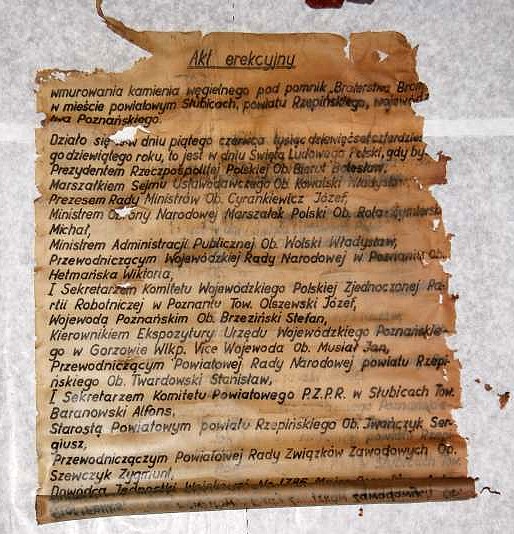 Akt erekcyjny
wmurowania kamienia węgielnego pod pomnik „Braterstwa Broni
w mieście powiatowym Słubicach, powiatu Rzepińskiego, wojewódz
twa Poznańskiego.
Działo się w dniu piątego czerwca tysiąc dziewięćset czterdzies
go dziewiątego roku, to jest w dniu Święta Ludowego Polski, gdy by
Prezydentem Rzeczpospolitej Polskiej Ob. Bierut Bolesław,
Marszałkiem Sejmu Ustawodawczego Ob. Kowalski Władysław,
Prezesem Rady Ministrów Ob. Cyrankiewicz Józef,
Ministrem Obrony Narodowej Marszałek Polski Ob. Rola-Żymierski
Michał,
Ministrem Administracji Publicznej Ob. Wolski Władysław,
Przewodniczącym Wojewódzkiej Rady Narodowej w Poznaniu Ob.
Hetmańska Wiktoria,
I Sekretarzem Komitetu Wojewódzkiego Polskiej Zjednoczonej Pa-
rtii Robotniczej w Poznaniu Tow. Olszewski Józef,
Wojewodą Poznańskim Ob. Brzeziński Stefan,
Kierownikiem Ekspozytury Urzędu Wojewódzkiego Poznańskie-
go w Gorzowie Wlkp. Vice Wojewoda Ob. Musiał Jan,
Przewodniczącym Powiatowej Rady Narodowej powiatu Rzepi-
ńskiego Ob. Twardowski Stanisław,
I Sekretarzem Komitetu Powiatowego P.Z.P.R. w Słubicach Tow.
Baranowski Alfons,
Starostą Powiatowym powiatu Rzepińskiego Ob. Iwańczyk Ser-
giusz,
Przewodniczącym Powiatowej Rady Związków Zawodowych Ob.
Szewczyk Zygmunt,
Dowódca Jednostki Wojskowej No 1786